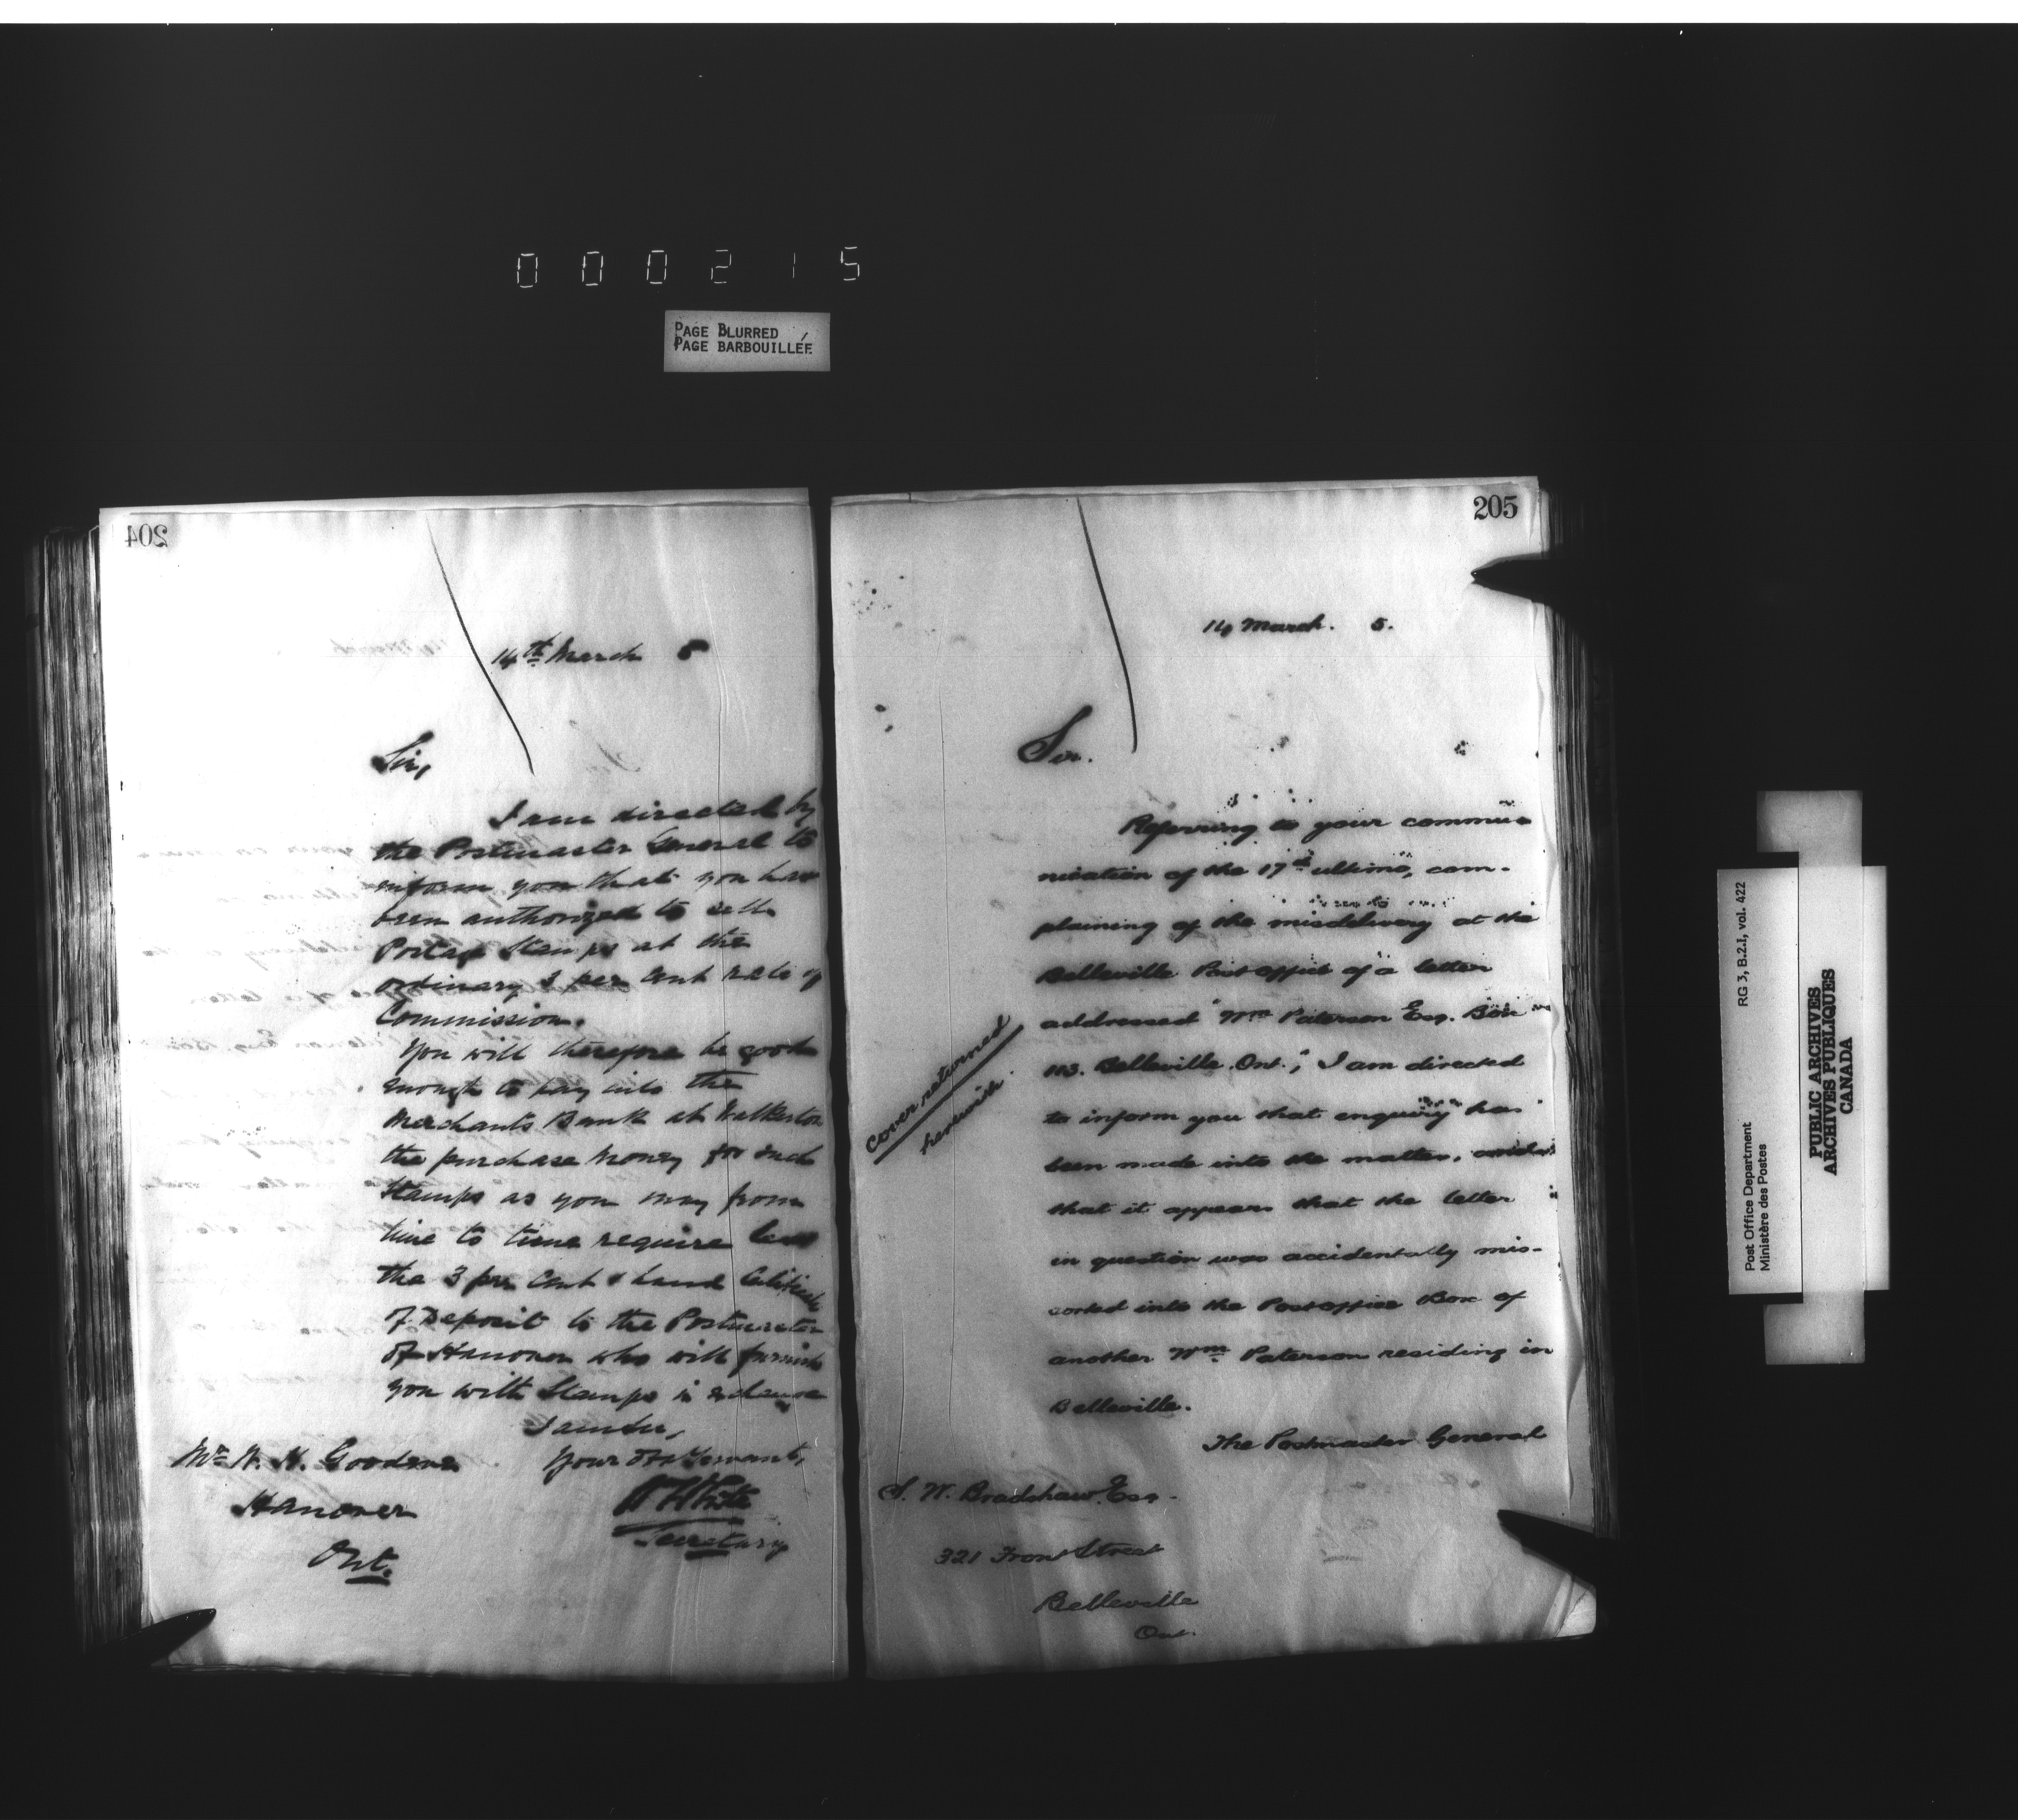 000215
PAGE BLURRED
PAGE BARBOUILLÉE
204
14th March 5
Sir,
I am directed by
the Postmaster General to
inform you that you have
been authorized to sell
Postage Stamps at the
ordinary 3 per cent rate of
Commission.
You will therefore be good
enough to pay into the
Merchants Bank at Walkerton
the purchase money for such
Stamps as you may from
time to time require less
the 3 per cent & hand Certificate
of Deposit to the Postmaster
of Hanover who will furnish
you with Stamps in exchange
I am Sir,
Your Obt Servant,
Secretary
Mr
Hanover
Ont.
205
14 March. 5.
Sir.
Referring to your commu-
nication of the 17th ultimo, com-
plaining of the misdelivery at the
Belleville Post office of a letter
addressed "Wm Paterson Esq. Box
113. Belleville. Ont.", I am directed
to inform you that enquiry has
been made into the matter, and
that it appears that the letter
in question was accidentally mis-
sorted into the Post office Box of
another Wm Paterson residing in
Belleville.
The Postmaster General
cover returned
herewith.
S. W. Bradshaw Esq.
321 Front Street
Belleville
Ont.
Post Office Department RG 3, B.2.I, vol. 422
Ministère des Postes
PUBLIC ARCHIVES
ARCHIVES PUBLIQUES
CANADA